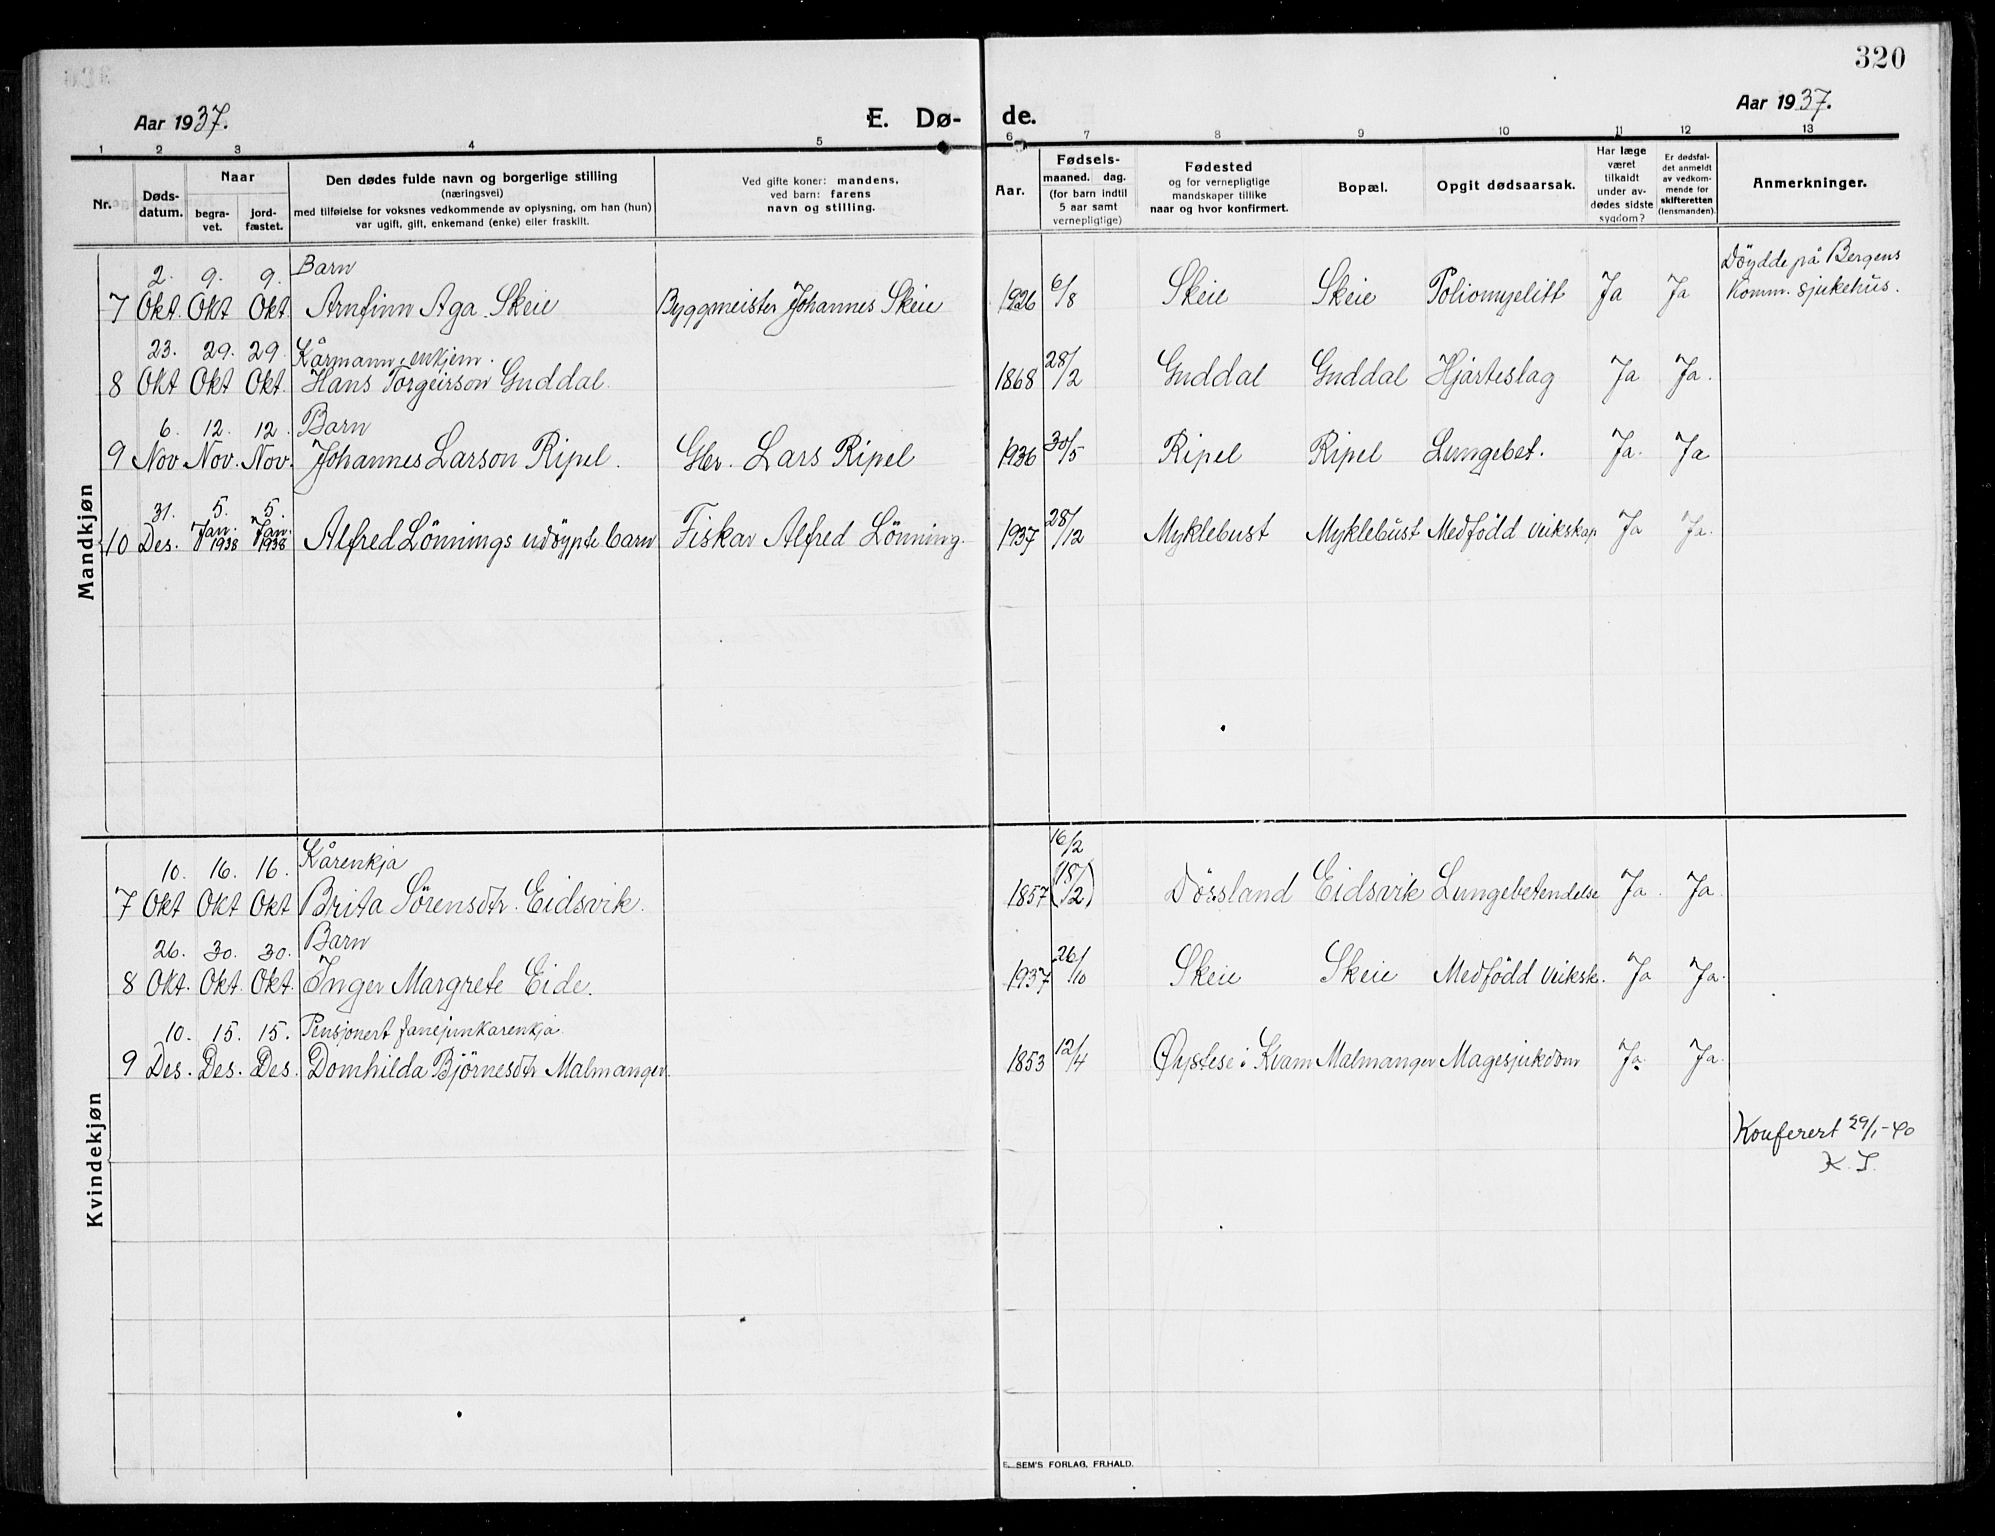 320
Aar 1937.
E. Dø-
de.
Aar 1937.
1 2 3 4 5 6 7 8 9 10 11 12 13
Nr.
Døds-
datum.
Naar
begra-
vet.
jord-
fæstet.
Den dødes fulde navn og borgerlige stilling
(næringsvei)
med tilføielse for voksnes vedkommende av oplysning, om han (hun)
var ugift, gift, enkemand (enke) eller fraskilt.
Ved gifte koner: mandens,
ved barn: farens
navn og stilling.
Aar.
Fødsels-
maaned. dag.
(for barn indtil
5 aar samt
vernepligtige)
Fødested
og for vernepligtige
mandskaper tillike
naar og hvor konfirmert.
Bopæl.
Opgit dødsaarsak.
Har læge
været
tilkaldt
under av-
dødes sidste
sygdom?
Er dødsfal-
det anmeldt
av vedkom-
mende for
skifteretten
(lensmanden).
Anmerkninger.
Mandkjøn
2. 9. 9. Barn
7 Okt. Okt Okt. Arnfinn Aga Skeie Byggmeister Johannes Skeie 1926 6/8 Skeie Skeie Poliomyelitt Ja Ja
Döydde på Bergens
Komm. sjukehus.
23. 29. 29. Kårmann, enkjem.
8 Okt Okt Okt. Hans Torgeirson Guddal. 1868 28/2 Guddal Guddal Hjarteslag Ja Ja.
6. 12. 12. Barn
9 Nov Nov. Nov. Johannes Larson Ripel. Gbr. Lars Ripel 1936 30/5 Ripel Ripel Lungebet. Ja. Ja
31. 5. 5.
10 Des. Jan. 1938 Jan. 1938 Alfred Lönnings udöypte barn Fiskar Alfred Lönning. 1937 28/12 Myklebust Myklebust Medfödd veikskap Ja Ja.
Kvindekjøn
10. 16. 16. Kårenkja 16/2
7 Okt Okt Okt Brita Sörensdtr. Eidsvik. 1857 (15/12) Dössland Eidsvik Lungebetendelse Ja. Ja.
26. 30. 30. Barn
8 Okt. Okt. Okt. Inger Margrete Eide. 1937 26/10 Skeie Skeie Medfödd veiksk. Ja Ja.
10. 15. 15. Pensjonert fanejunkarenkja.
9 Des. Des. Des. Domhilda Björnesdtr Malmanger. 1853 12/4 Öystese i Kvam Malmanger Magesjukdom Ja. Ja.
Konferert 29/1-40
K. S.
E. SEM'S FORLAG, FR.HALD.